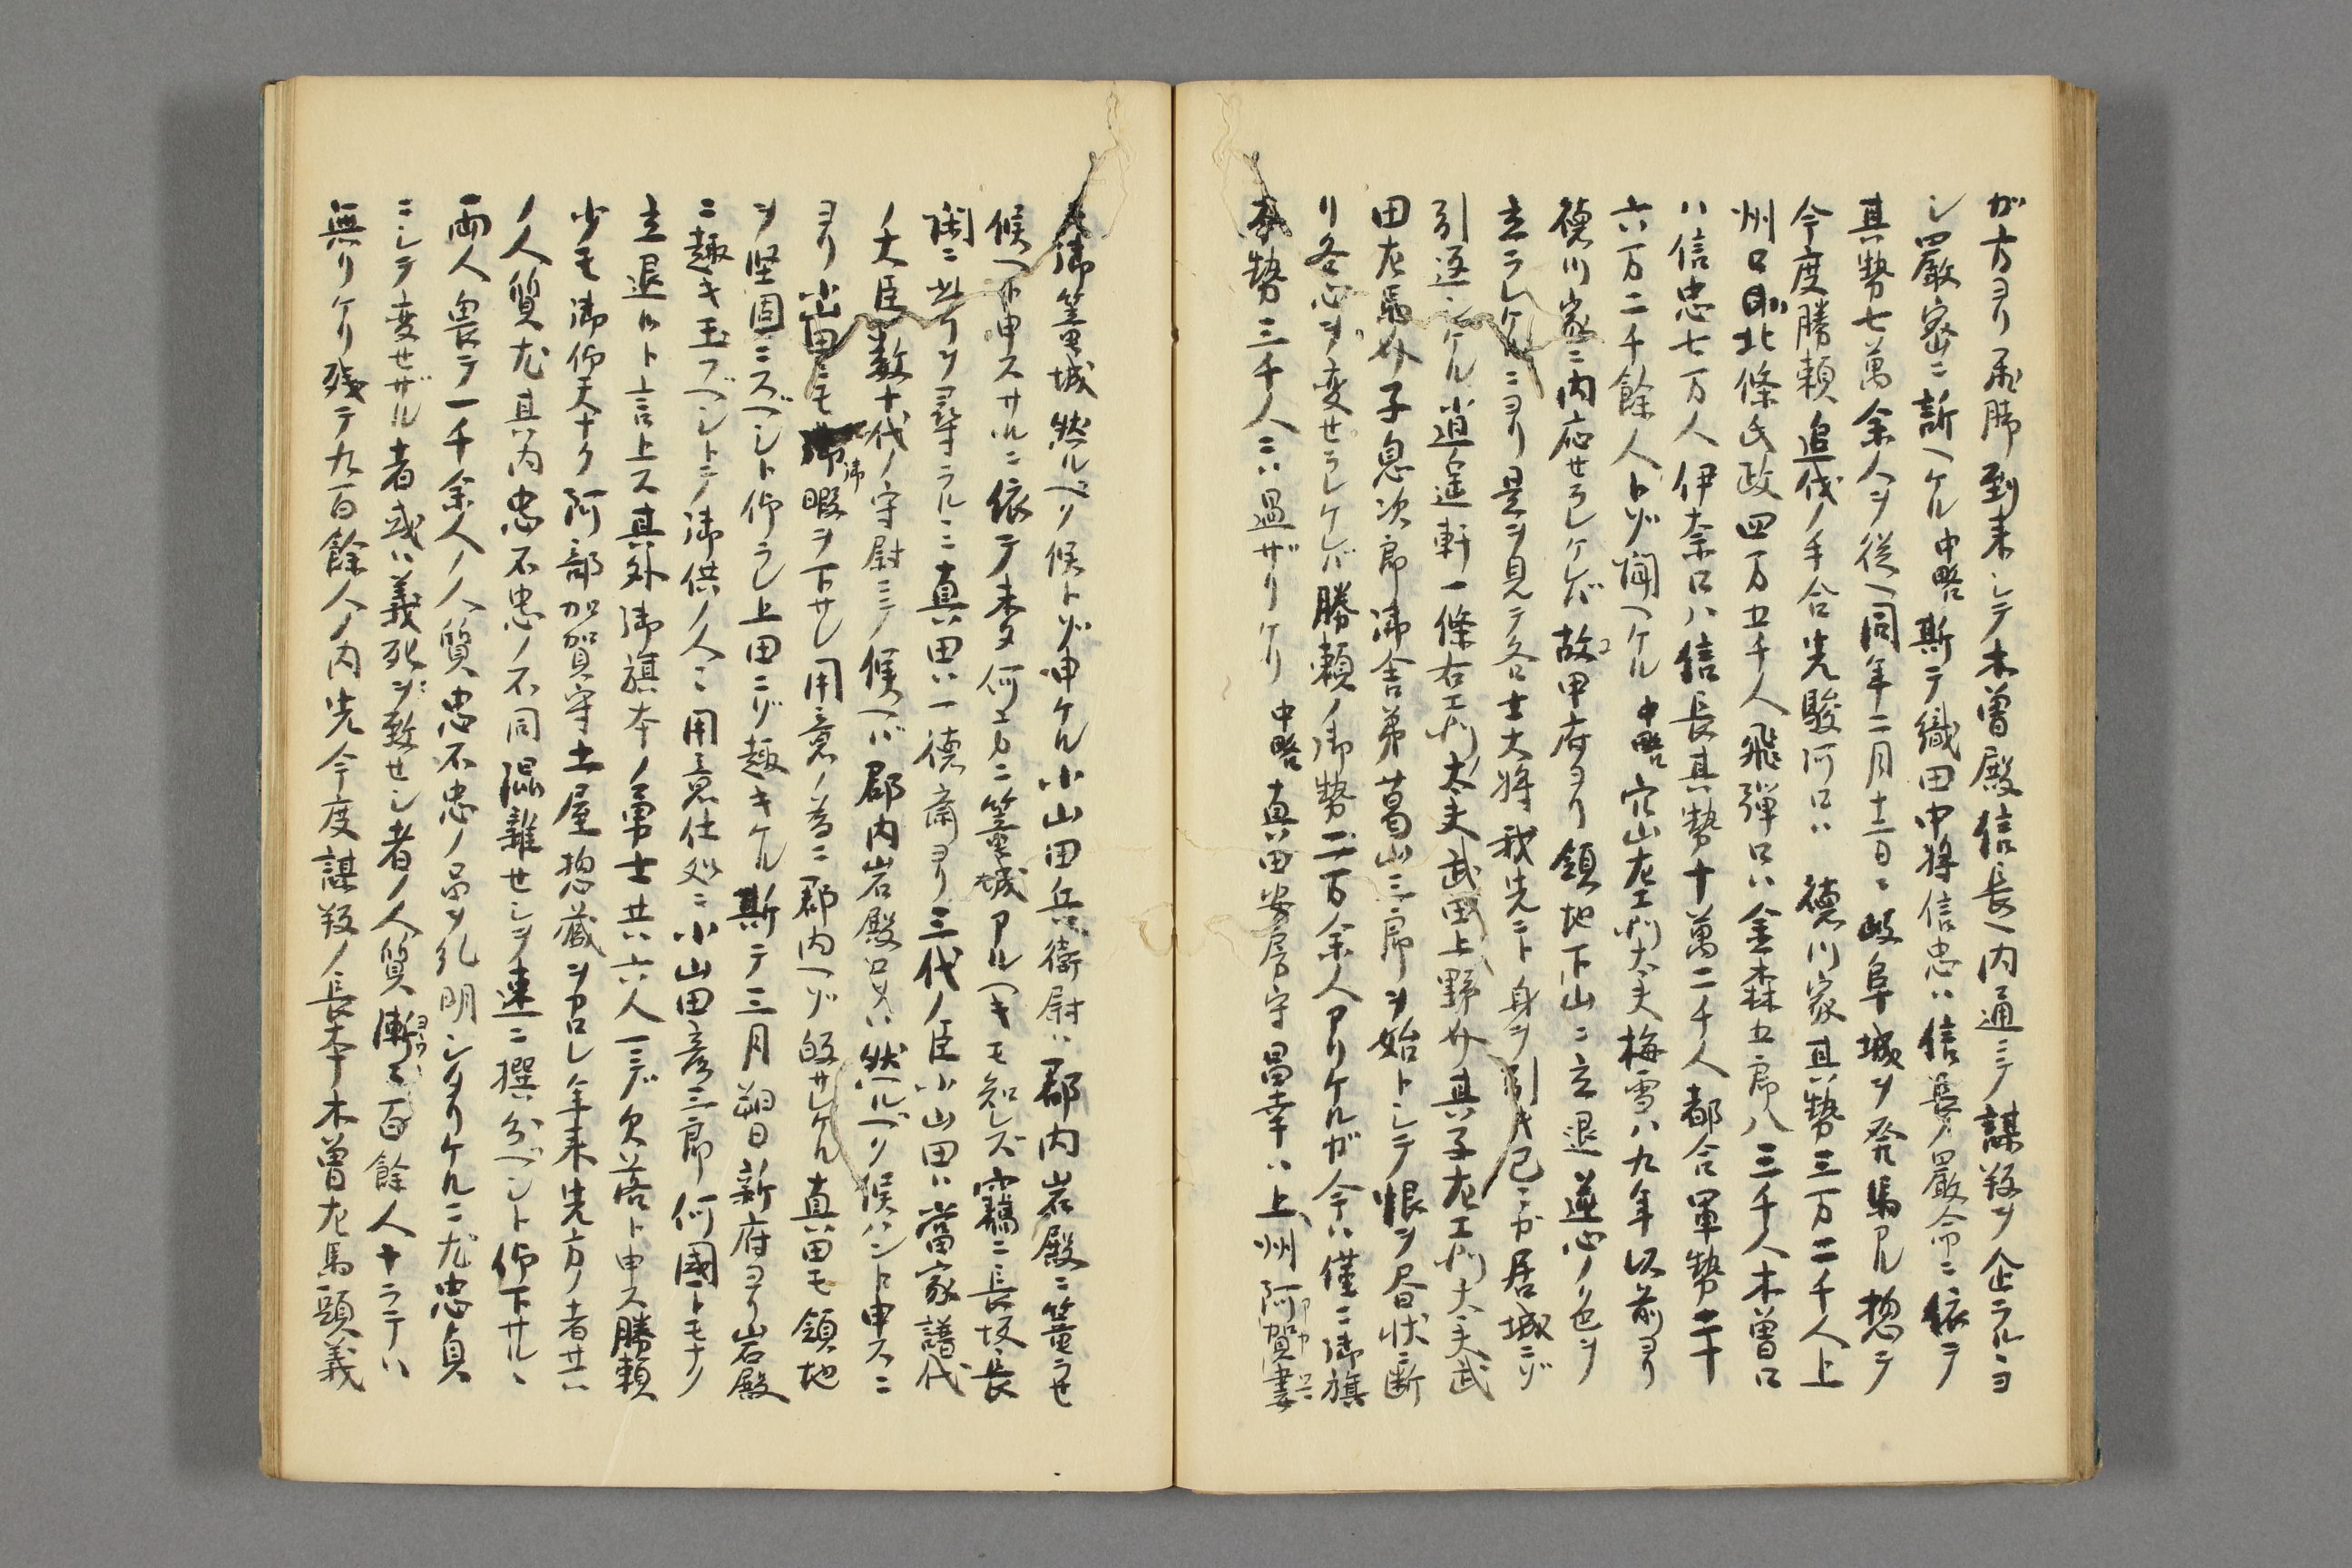 ガ方ヨリ飛脚到来シテ木曽殿信長ヘ内通ニテ謀叛ヲ企ラルヽヨ
シ厳密ニ訴ヘケル中略斯テ織田中将信忠ハ信長ノ厳命ニ依テ
其勢七萬余人ヲ従ヘ同年二月十二日ニ岐阜城ヲ発馬アル惣テ
今度勝頼追伐ノ手合先駿河口ハ 徳川家其勢三万二千人上
州口ハ北條氏政四万五千人飛弾口ハ金森五郎八三千人木曽口
ハ信忠七万人伊奈口ハ信長其勢十萬二千人都合軍勢二十
六万二千餘人トゾ聞ヘケル 中略 穴山左エ門大夫梅雪ハ九年以前ヨリ
徳川家ニ内応せラレケレバ故甲府ヨリ領地下山ニ立退逆心ノ色ヲ
立ラレケルニヨリ是ヲ見テ各士大将我先ニト身ヲ引キ己ニガ居城ニゾ
引返シケル逍遥軒一條右エ門太夫武田上野介其子左エ門大夫武
田左馬介子息次郎御舎弟葛山三郎ヲ始トシテ恨ヲ昼伏断
リ各心ヲ変せラレケレバ勝頼ノ御勢二万余人アリケルガ今ハ僅ニ御旗
本勢三千人ニハ過ザリケリ 中略 真田安房守昌幸ハ上州阿賀妻
ヘ御篭城然ルベク候トゾ申ケル小山田兵衛尉ハ郡内岩殿ニ篭ラせ
候ヘト申スサルニ依テ未タ何エカニ篭城アルヘキモ知レズ竊ニ長坂長
閑ニ此ヲ尋ラルヽニ真田ハ一徳斎ヨリ三代ノ臣小山田ハ當家譜代
ノ大臣数十代ノ守尉ニテ候ヘバ郡内岩殿コソハ然ルベク候ハント申スニ
ヨリ小山田ニモ御暇ヲ下サレ用意ノ為ニ郡内ヘゾ皈サレケル真田モ領地
ヲ堅固ニスベシト仰ラレ上田ニゾ趣キケル斯テ三月朔日新府ヨリ岩殿
ニ趣キ玉フベシトテ御供ノ人ニ用意仕処ニ小山田彦三郎何國トモナク
立退ルト言上ス其外御旗本ノ勇士共六人一ニ欠落ト申ス勝頼
少モ御仰天ナク阿部加賀守土屋惣蔵ヲカロシ年来先方ノ者共ハ
ノ人質尤其内忠不忠ノ不同混雑せシヲ速ニ撰分ベシト仰下サルヽ
両人畏テ一千余人ノ人質忠不忠ノ品ヲ糺明シタリケルニ尤忠貞
ニシテ変せザル者或ハ義死ヲ致せシ者ノ人質漸々百餘人ナラテハ
無リケリ残テ九百餘人ノ内先今度謀叛ノ長本木曽左馬頭義